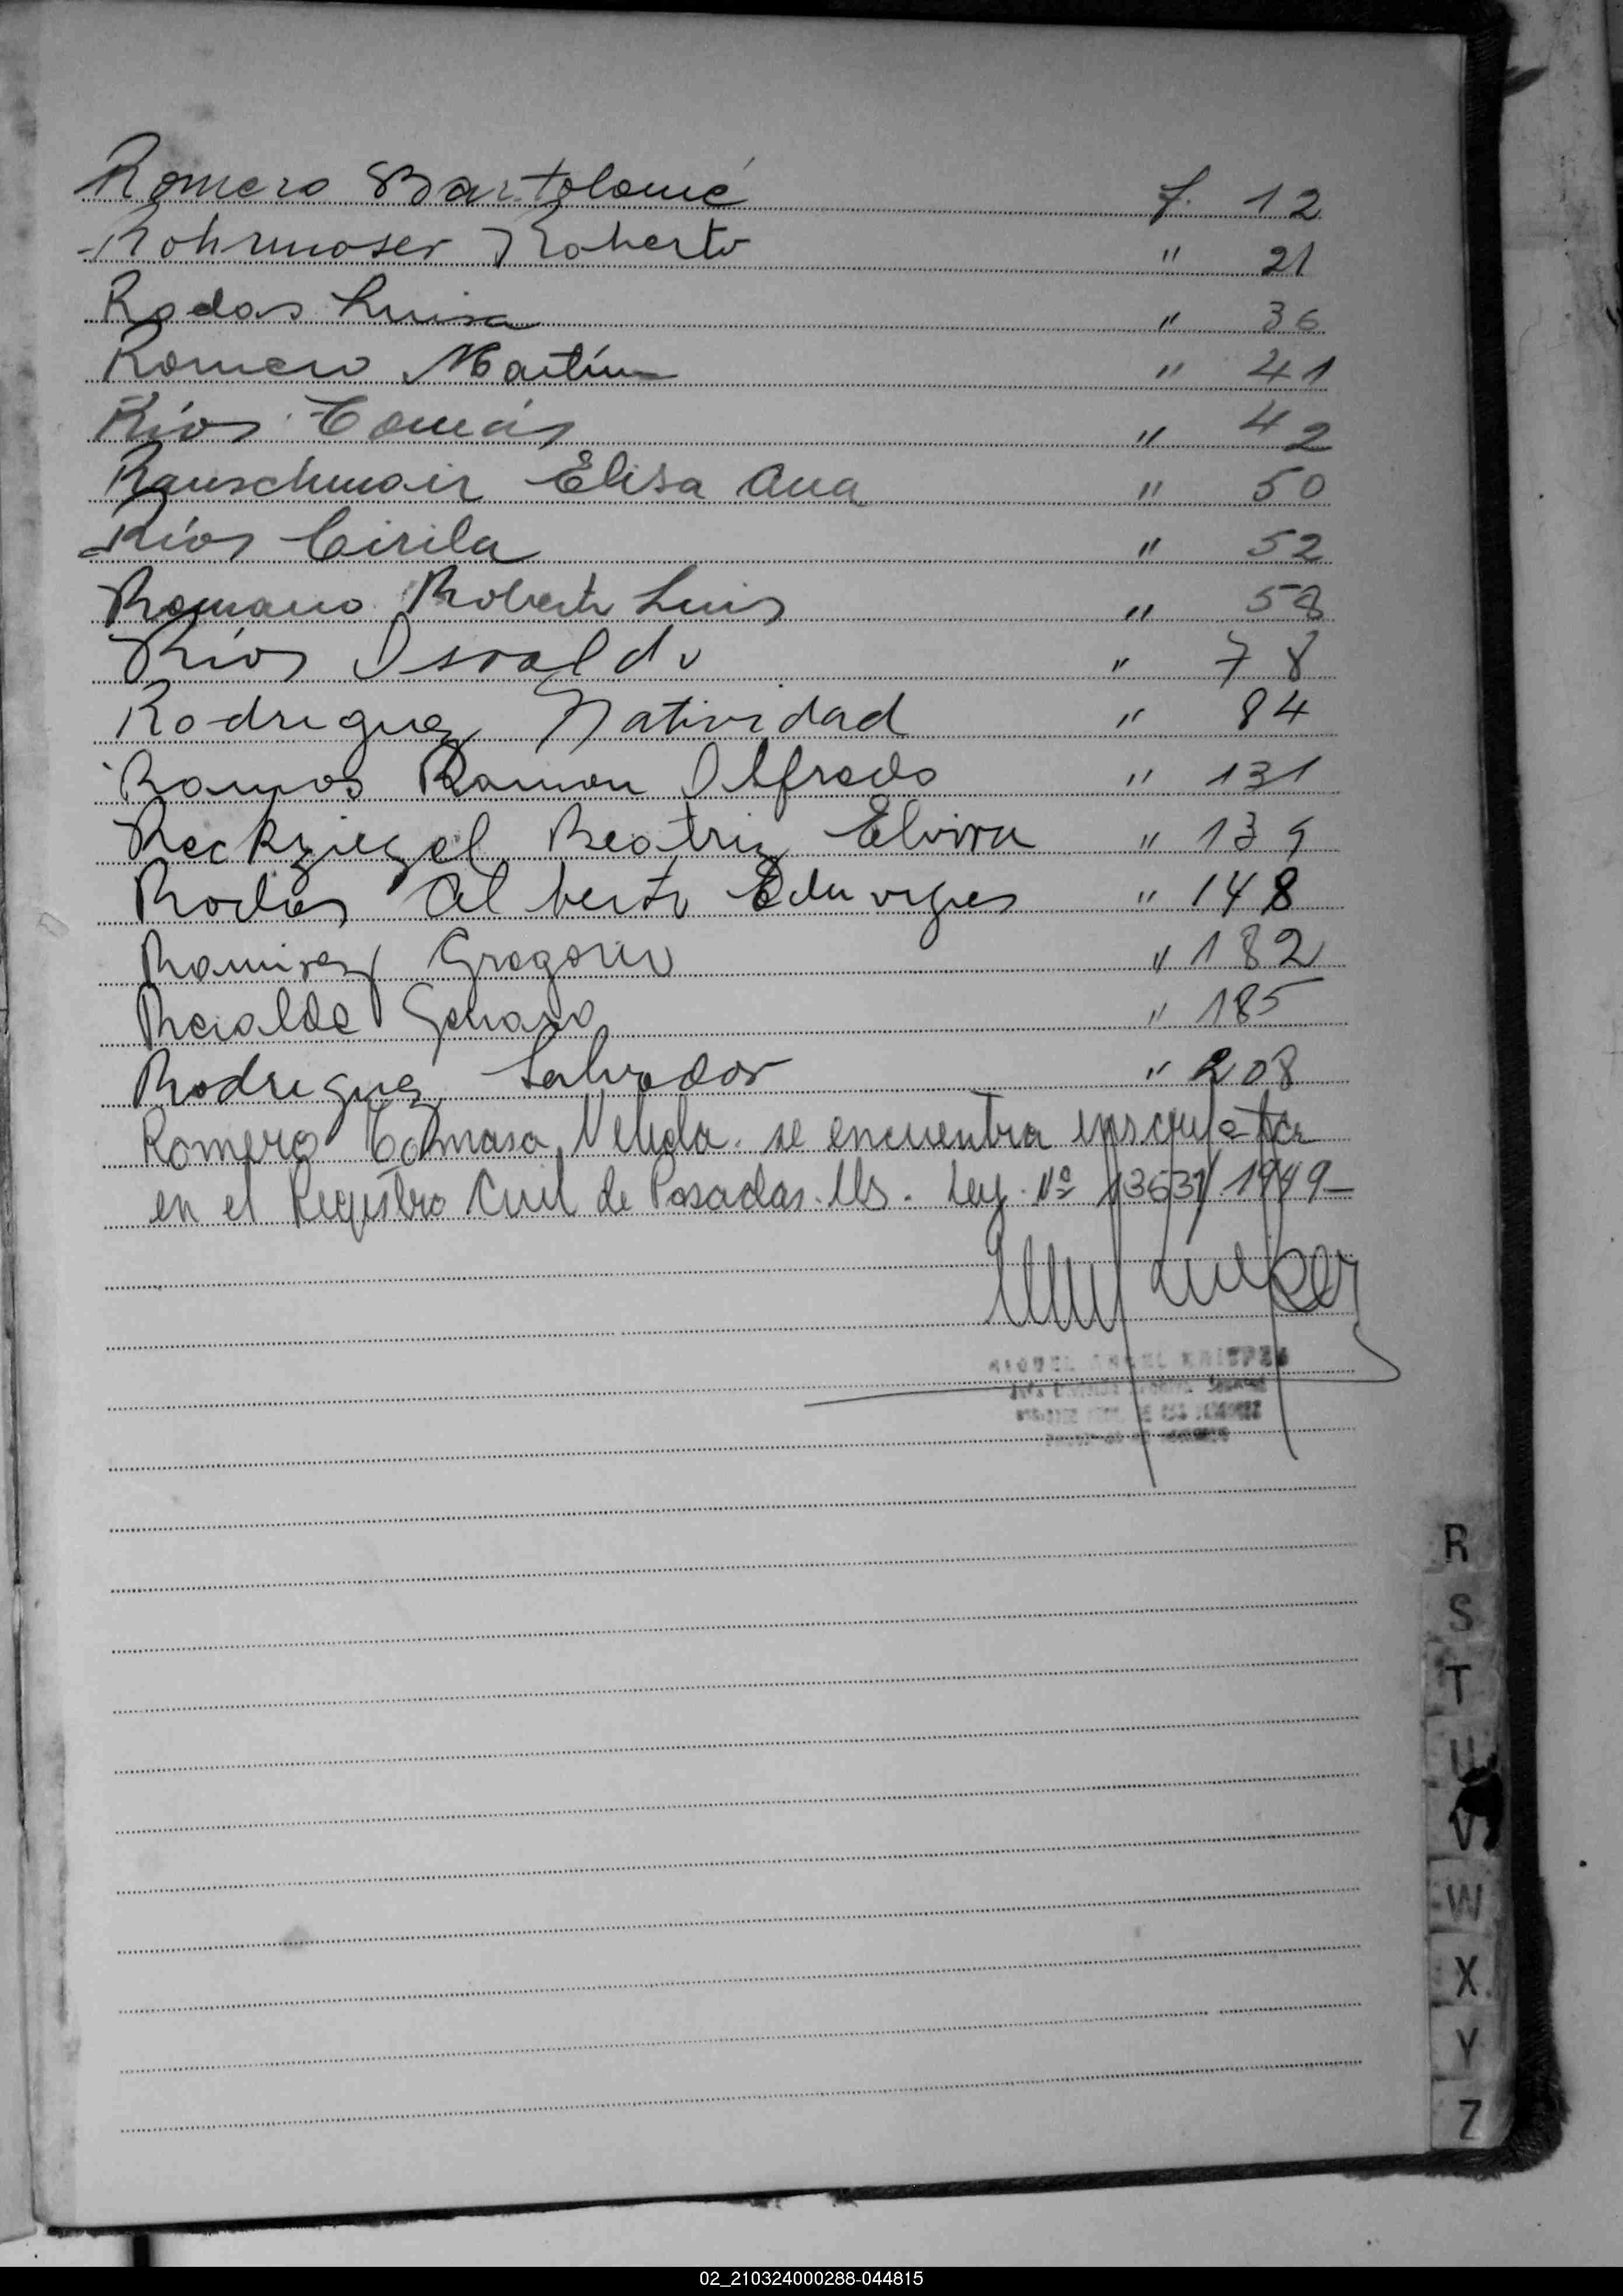 Romero Bartolomé f. 12
Rohrmoser Roberto " 21
Rodas Luisa " 36
Romero Martín " 41
Ríos Tomás " 42
Rauschmair Elisa Ana " 50
Ríos Cirila " 52
Romano Roberto Luis " 58
Ríos Osvaldo " 78
Rodriguez Natividad " 84
Ramos Ramon Alfredo " 131
Reckziegel Beatriz Elvira " 139
Rodas Alberto Eduviges " 148
Ramirez Gregorio " 182
Recalde Genaro " 185
Rodriguez Salvador " 208
Romero Tomasa Nelida. se encuentra inscripta
en el Registro Civil de Posadas. Ms. Ley. Nº 13637/1949-
MIGUEL ANGEL
R
S
T
U
V
W
X
Y
Z
02_210324000288-044815